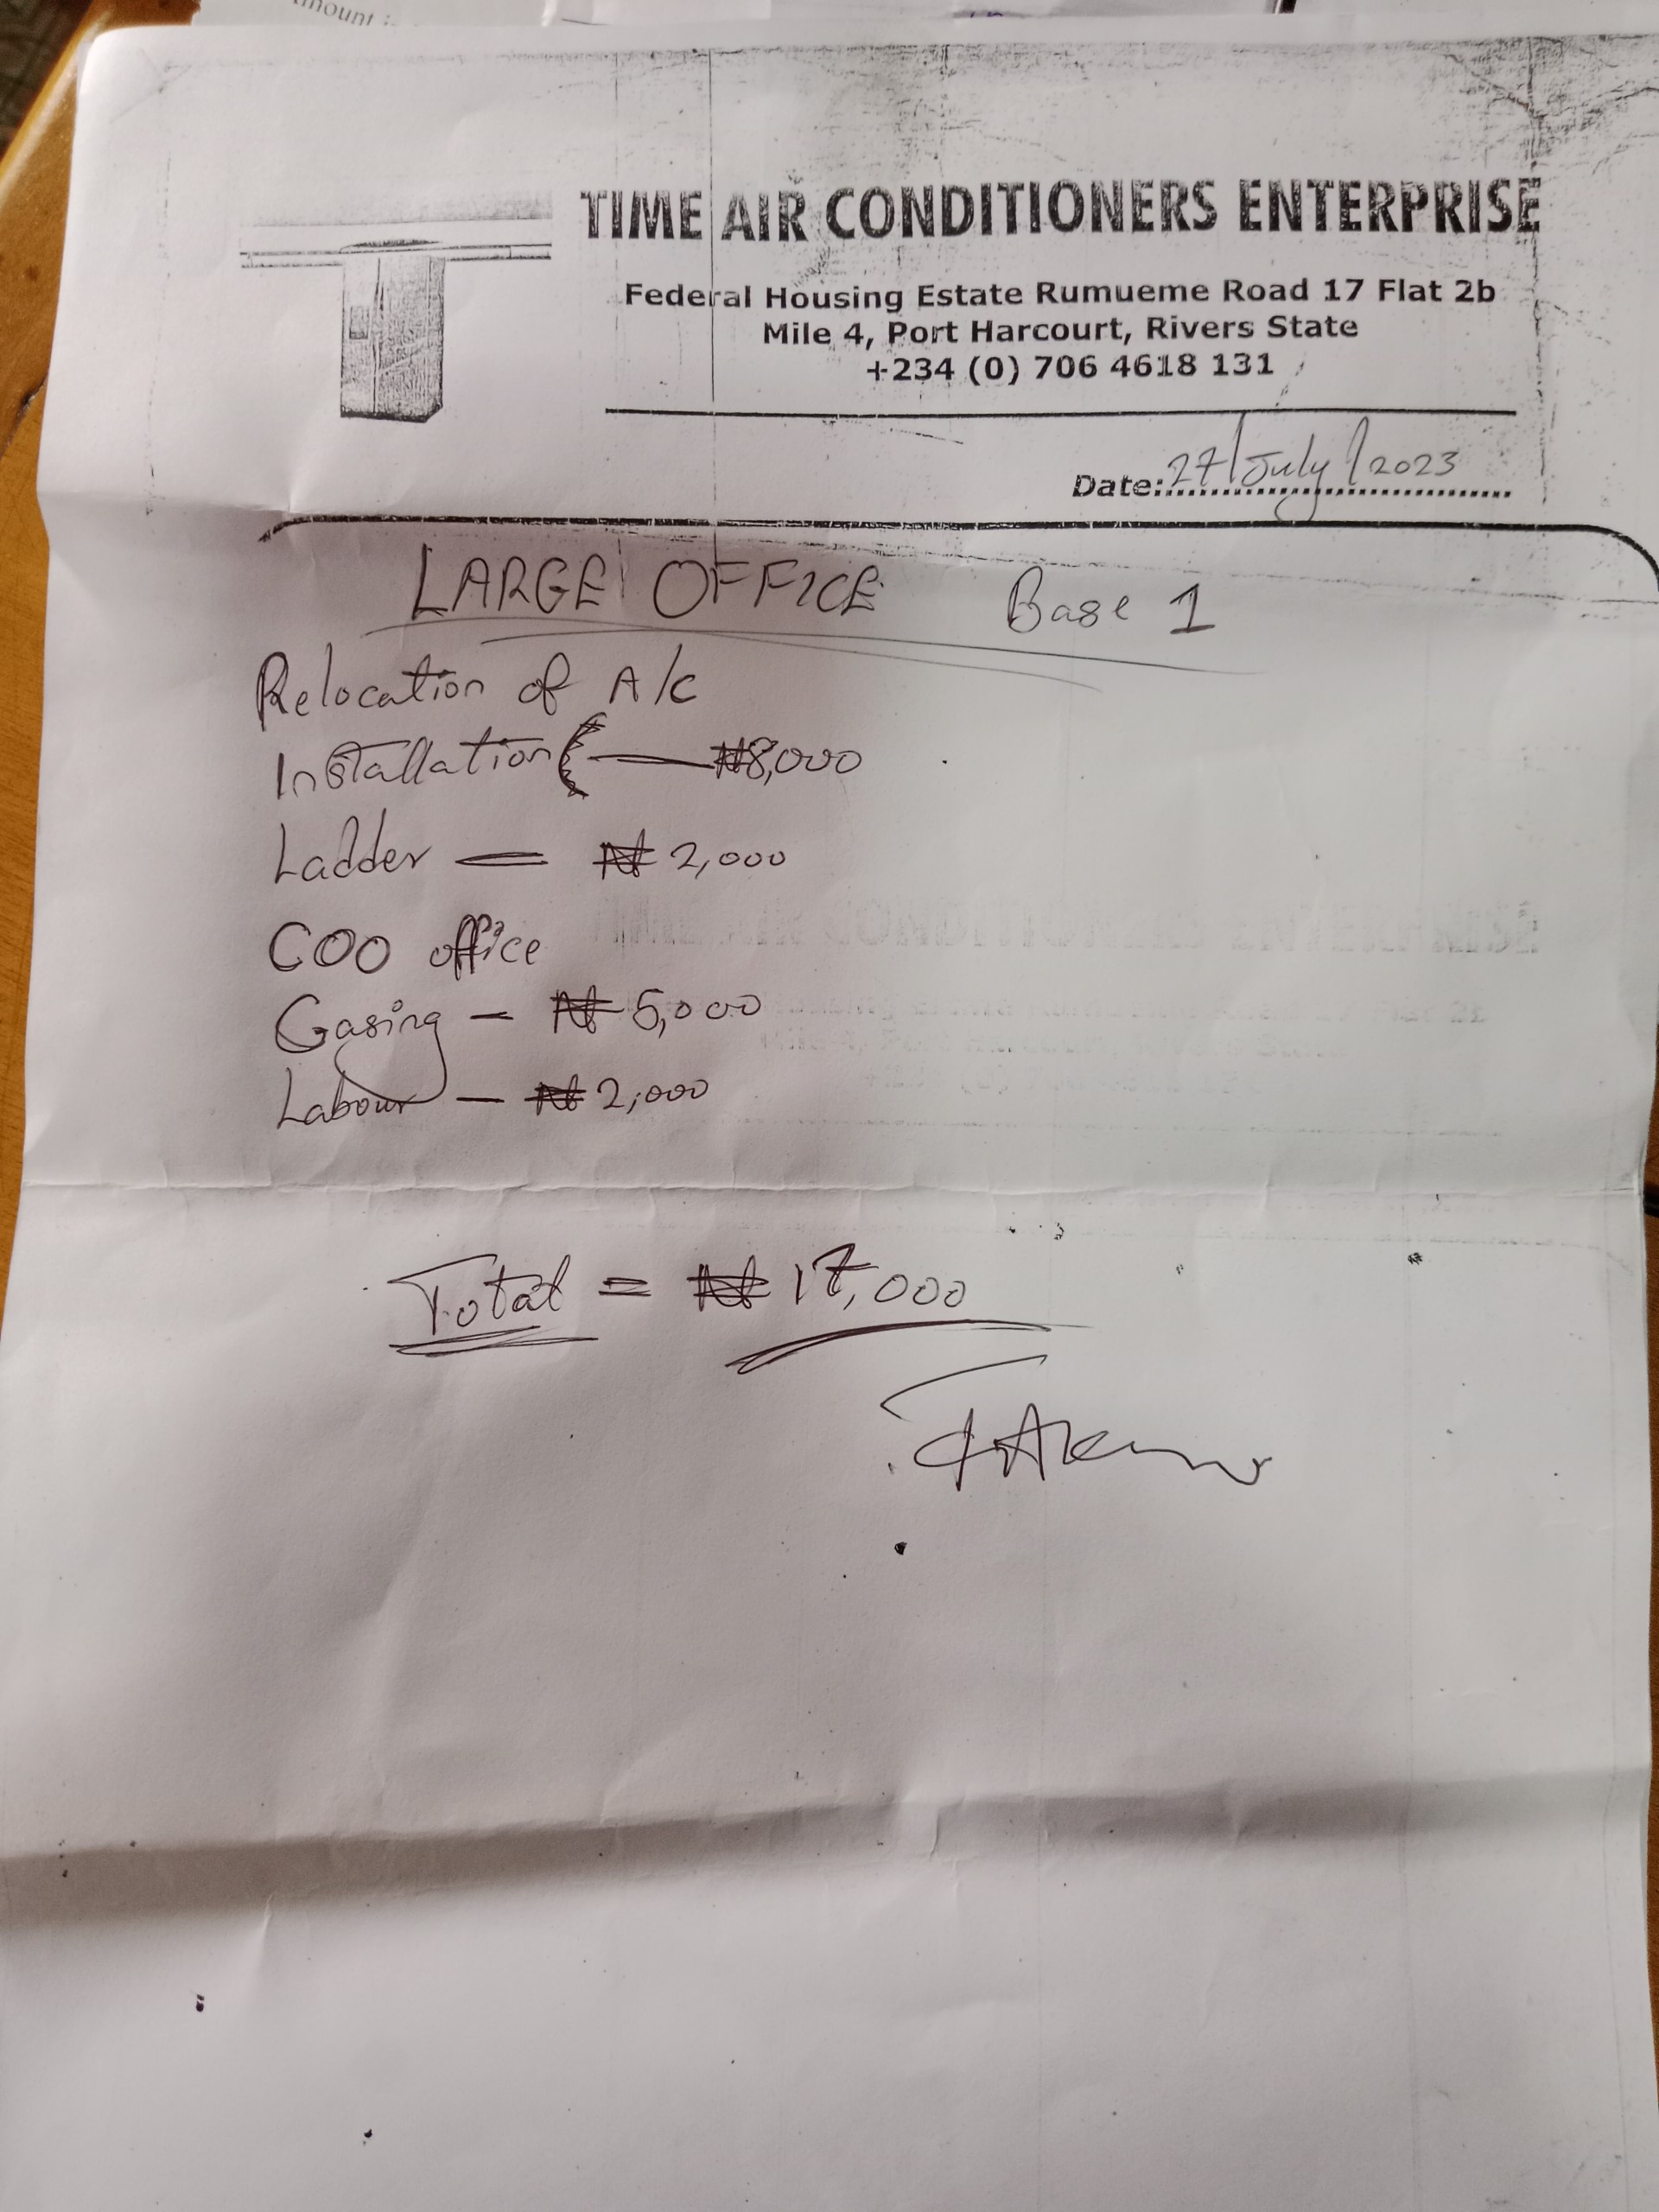 TIME AIR CONDITIONERS ENTERPRISE
Federal Housing Estate Rumueme Road 17 Flat 2b
Mile 4, Port Harcourt, Rivers State
+234 (0) 706 4618 131
Date: 27/July/2023
LARGE OFFICE Base 1
Relocation of A/C
Installation — ₦8,000
Ladder — ₦ 2,000
COO office
Gasing — ₦ 5,000
Labour — ₦ 2,000
Total = ₦ 17,000